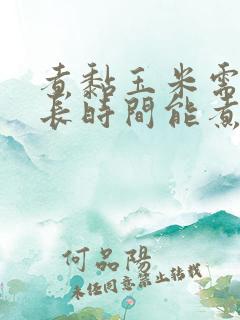 煮黏玉米需
長時間能煮
何品陽
未經同意禁止轉載